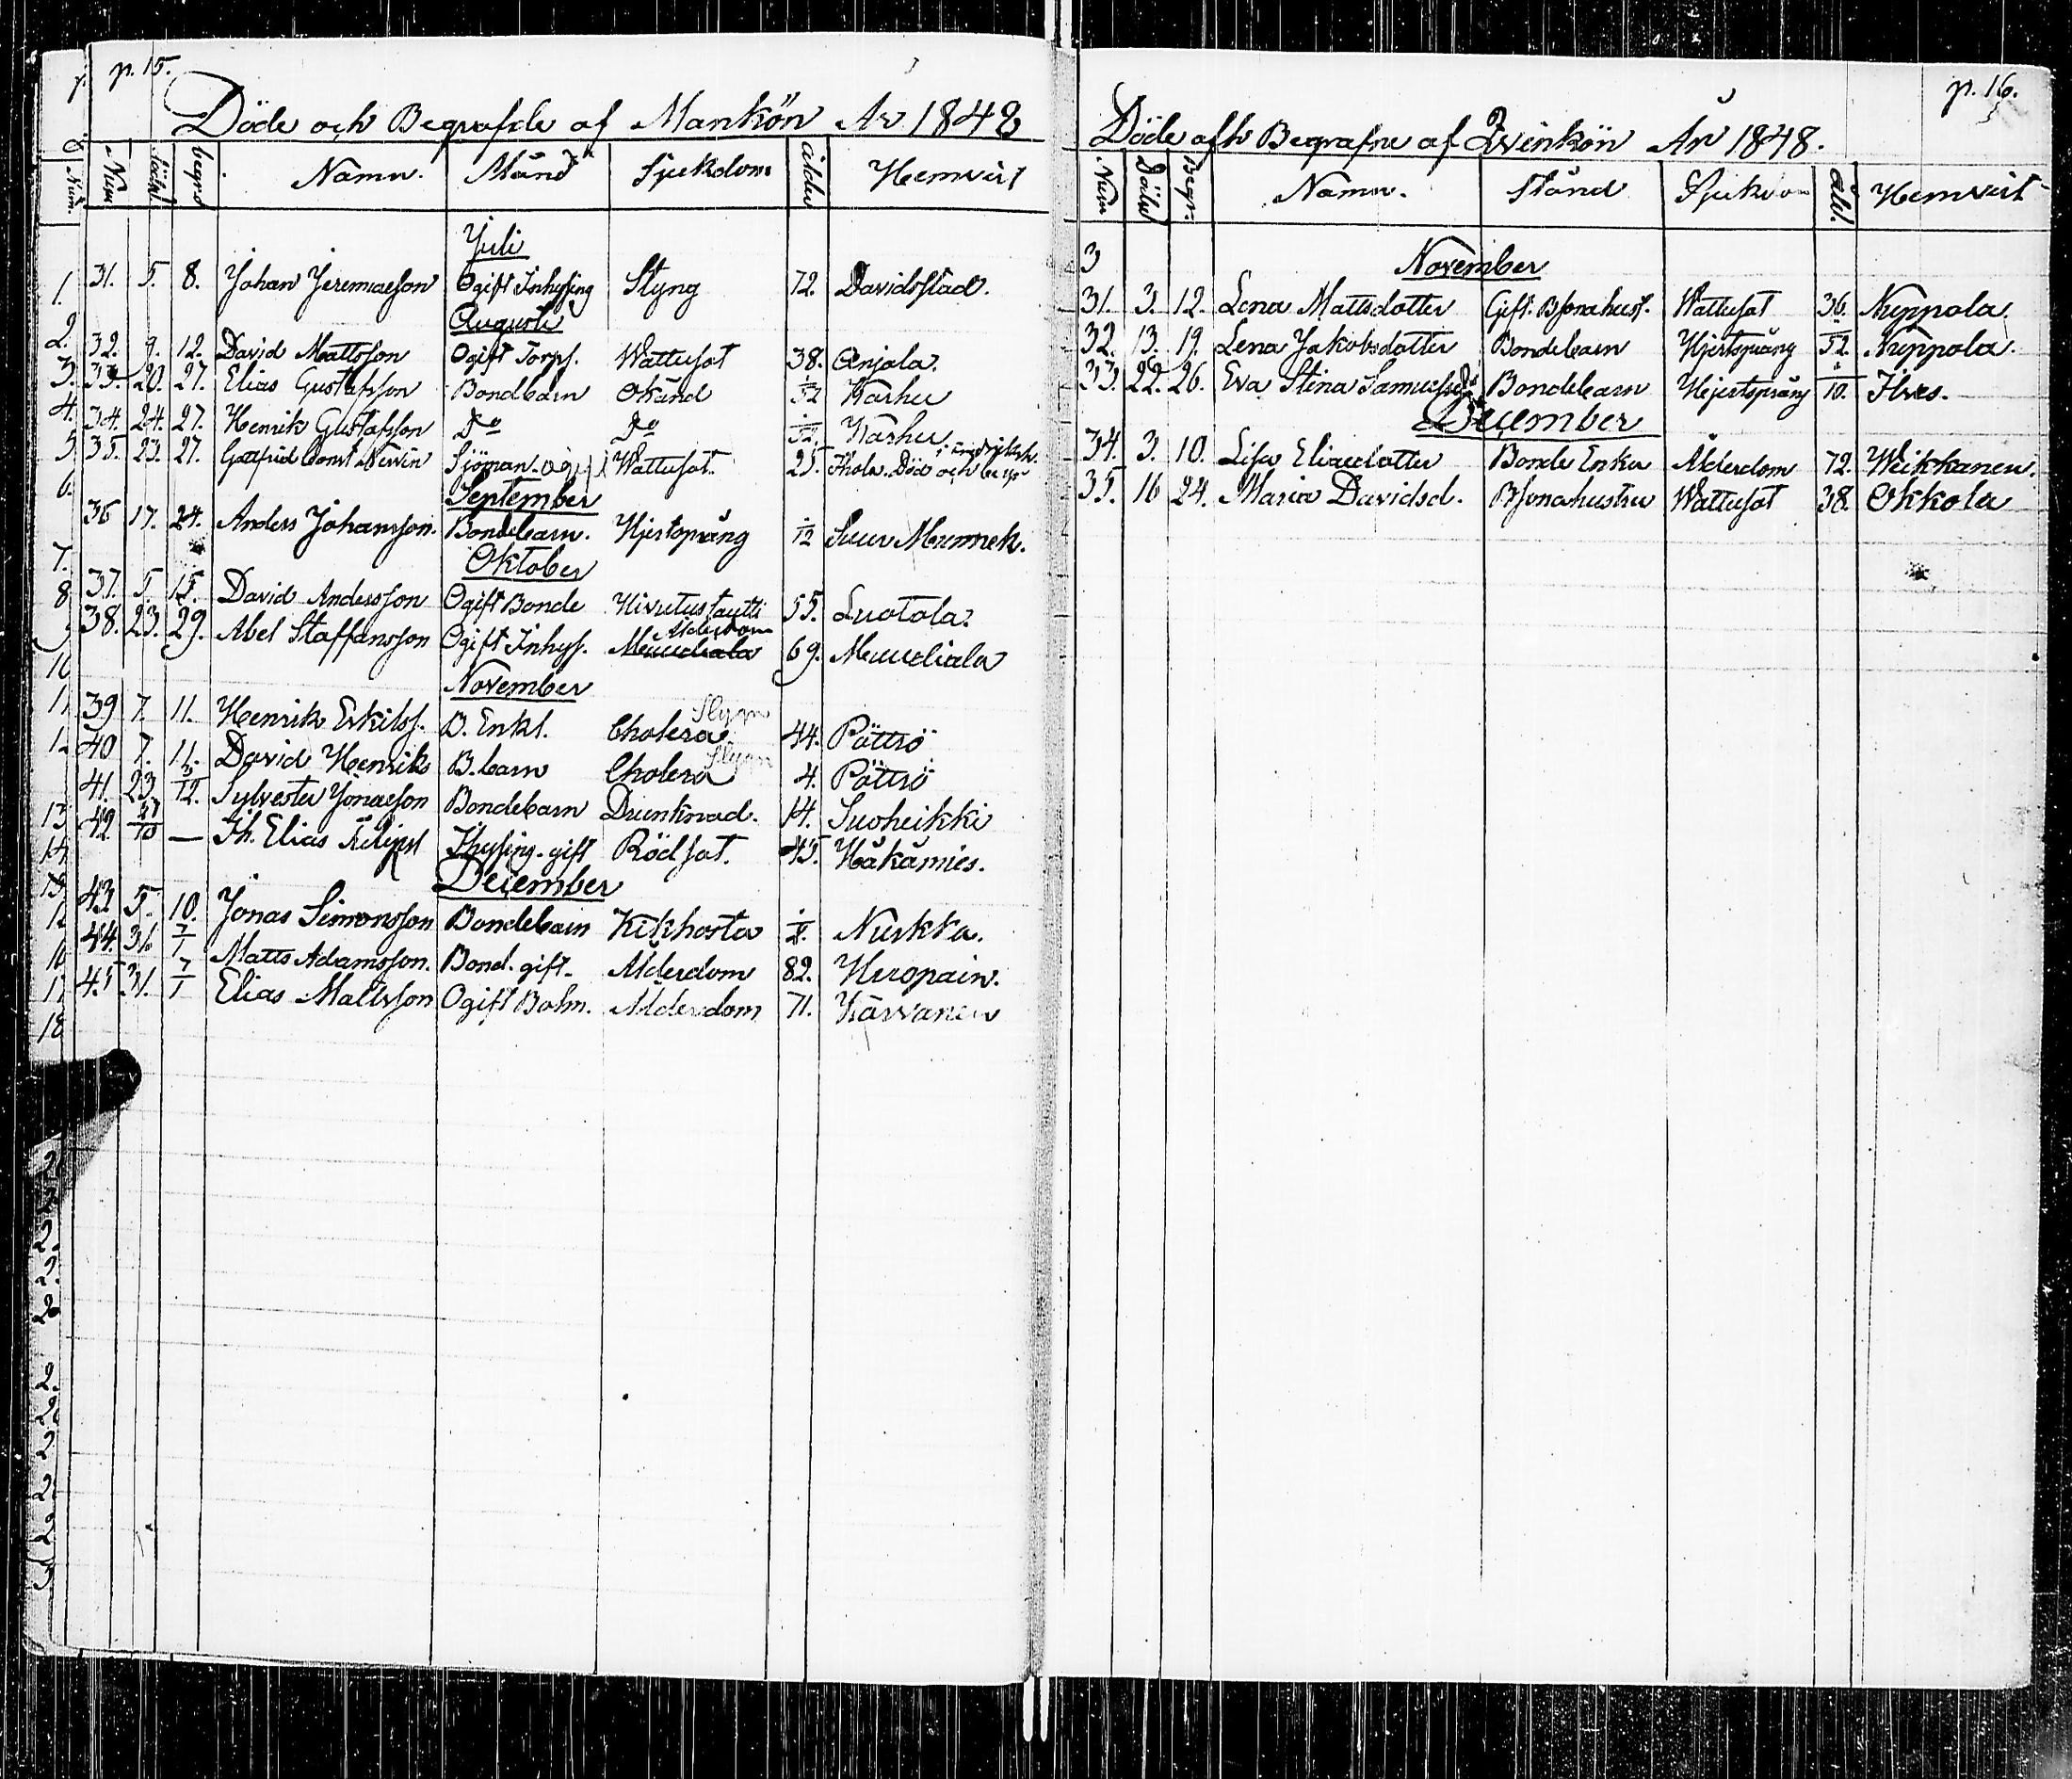 p. 15.
Döde och Begrafde af Mankön År 1848
Num. Döde begrd Namn. Stånd Sjukdom ålder Hemvist
Juli
31. 5. 8. Johan Jeremiaeson Ogift Inhysing Styng 72. Davidsstad.
Augusti
32. 9. 12. David Mattsson Ogift Torps. Wattusot 38. Anjala.
33. 20. 27. Elias Gustafsson Bondbarn Okänd 1/52 Karhu
34. 24. 27. Henrik Gustafsson Do Do 1/52 Karhu
35. 23. 27. Gottfrid Const Sjöman. Wattusot. 25. Thola. Död och
September
36 17. 24. Anders Johansson. Bondebarn. Hjertsprång 1/12 Suur Mummek.
Oktober
37. 5. 15. David Andersson Ogift Bonde Hivutustautti 55. Luotola.
38. 23. 29. Abel Staffansson Ogift Inhys. Ålderdom 69. Muudiala
November
39 7. 11. Henrik Erkilss. B. Enkl. Cholera Slygn 44. Pöttrö
40 7. 11. David Henriks B. barn Cholera Slygn 4. Pöttrö
41. 23. 3/12. Sylvester Jonaeson Bondebarn Drunknad. 14. Suoheikki
42 27/10 — Th. Elias Ihysing. gift Rödsot. 45. Häkämies.
December
43 5. 10. Jonas Simonsson Bondebarn Kikhosta Nurkka.
44. 31. 7/1 Matts Adamsson. Bond. gift. Ålderdom 82. Huopain.
45 31. 7/1 Elias Mattsson Ogift Ålderdom 71. Kärvanen
p. 16.
Döde och Begrafne af Qvinkön År 1848.
Num Döde Begr. Namn. Stånd Sjukdom Åld. Hemvist
3
November
31. 3. 12. Lena Mattsdotter Gift. Bsonahust. Wattusot 36. Nuppola.
32. 13. 19. Lena Jakobsdotter Bondebarn Hjertsprång 1/52. Nuppola.
33. 22. 26. Eva Stina Samuelsd. Bondebarn Hjertsprång 10. Ilves.
December
34. 3. 10. Lisa Eliaedotter Bonde Enka Ålderdom 72. Weikkanen.
35. 16 24. Maria Davidsd. Bsonahustru Wattusot 38. Okkola